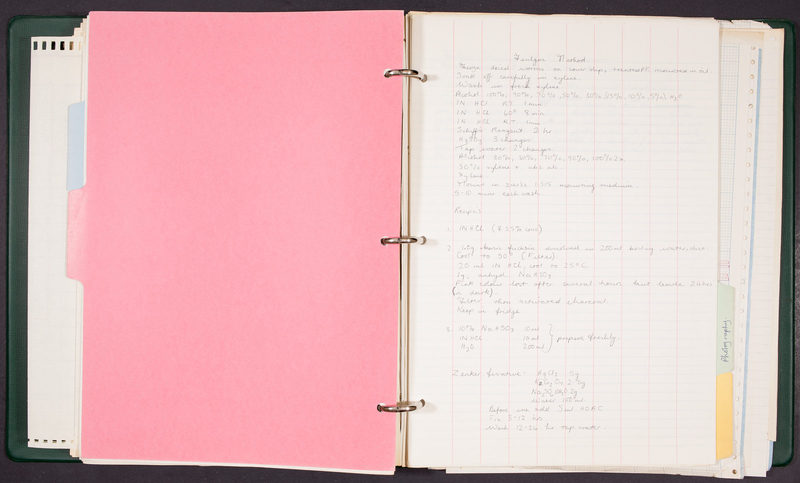 Feulgen Method
Freeze dried worms on cover slips, mounted in oil.
Soak off carefully in xylene.
Wash in fresh xylene
Alcohol 100%, 90%, 70%, 50%, 30%, 15%, 10%, 5%, H2O
1N HCl RT 1 min
1N HCl 60° 8 min
1N HCl RT 1 min
Schiffs Reagent 2 hr
3 changes
Tap water 2 changes
Alcohol 30%, 50%, 70%, 90%, 100% 2x
50% xylene + abs alc
Xylene
Mount in mounting medium
5-10 mins each wash
Recipes
1. 1N HCl (8.35% conc)
2. 1.0g basic fuchsin dissolved in 200ml boiling water,
Cool to 50° (Filter)
20 ml 1N HCl, cool to 25°C
1g. anhyd. NaHSO3
Pink colour lost after several hours but leave 24 hrs
(in dark).
Filter thro activated charcoal.
Keep in fridge
3. 10% NaHSO3 10 ml
1N HCl 10 ml } prepare freshly.
H2O 200 ml
Zenker fixative: HgCl2 5g
K2Cr2O7 2.5g
Na2SO4
Water 100 ml
Before use add 5ml HOAC
Fix 3-12 hrs
Wash 12-24 hr tap water.
Photography